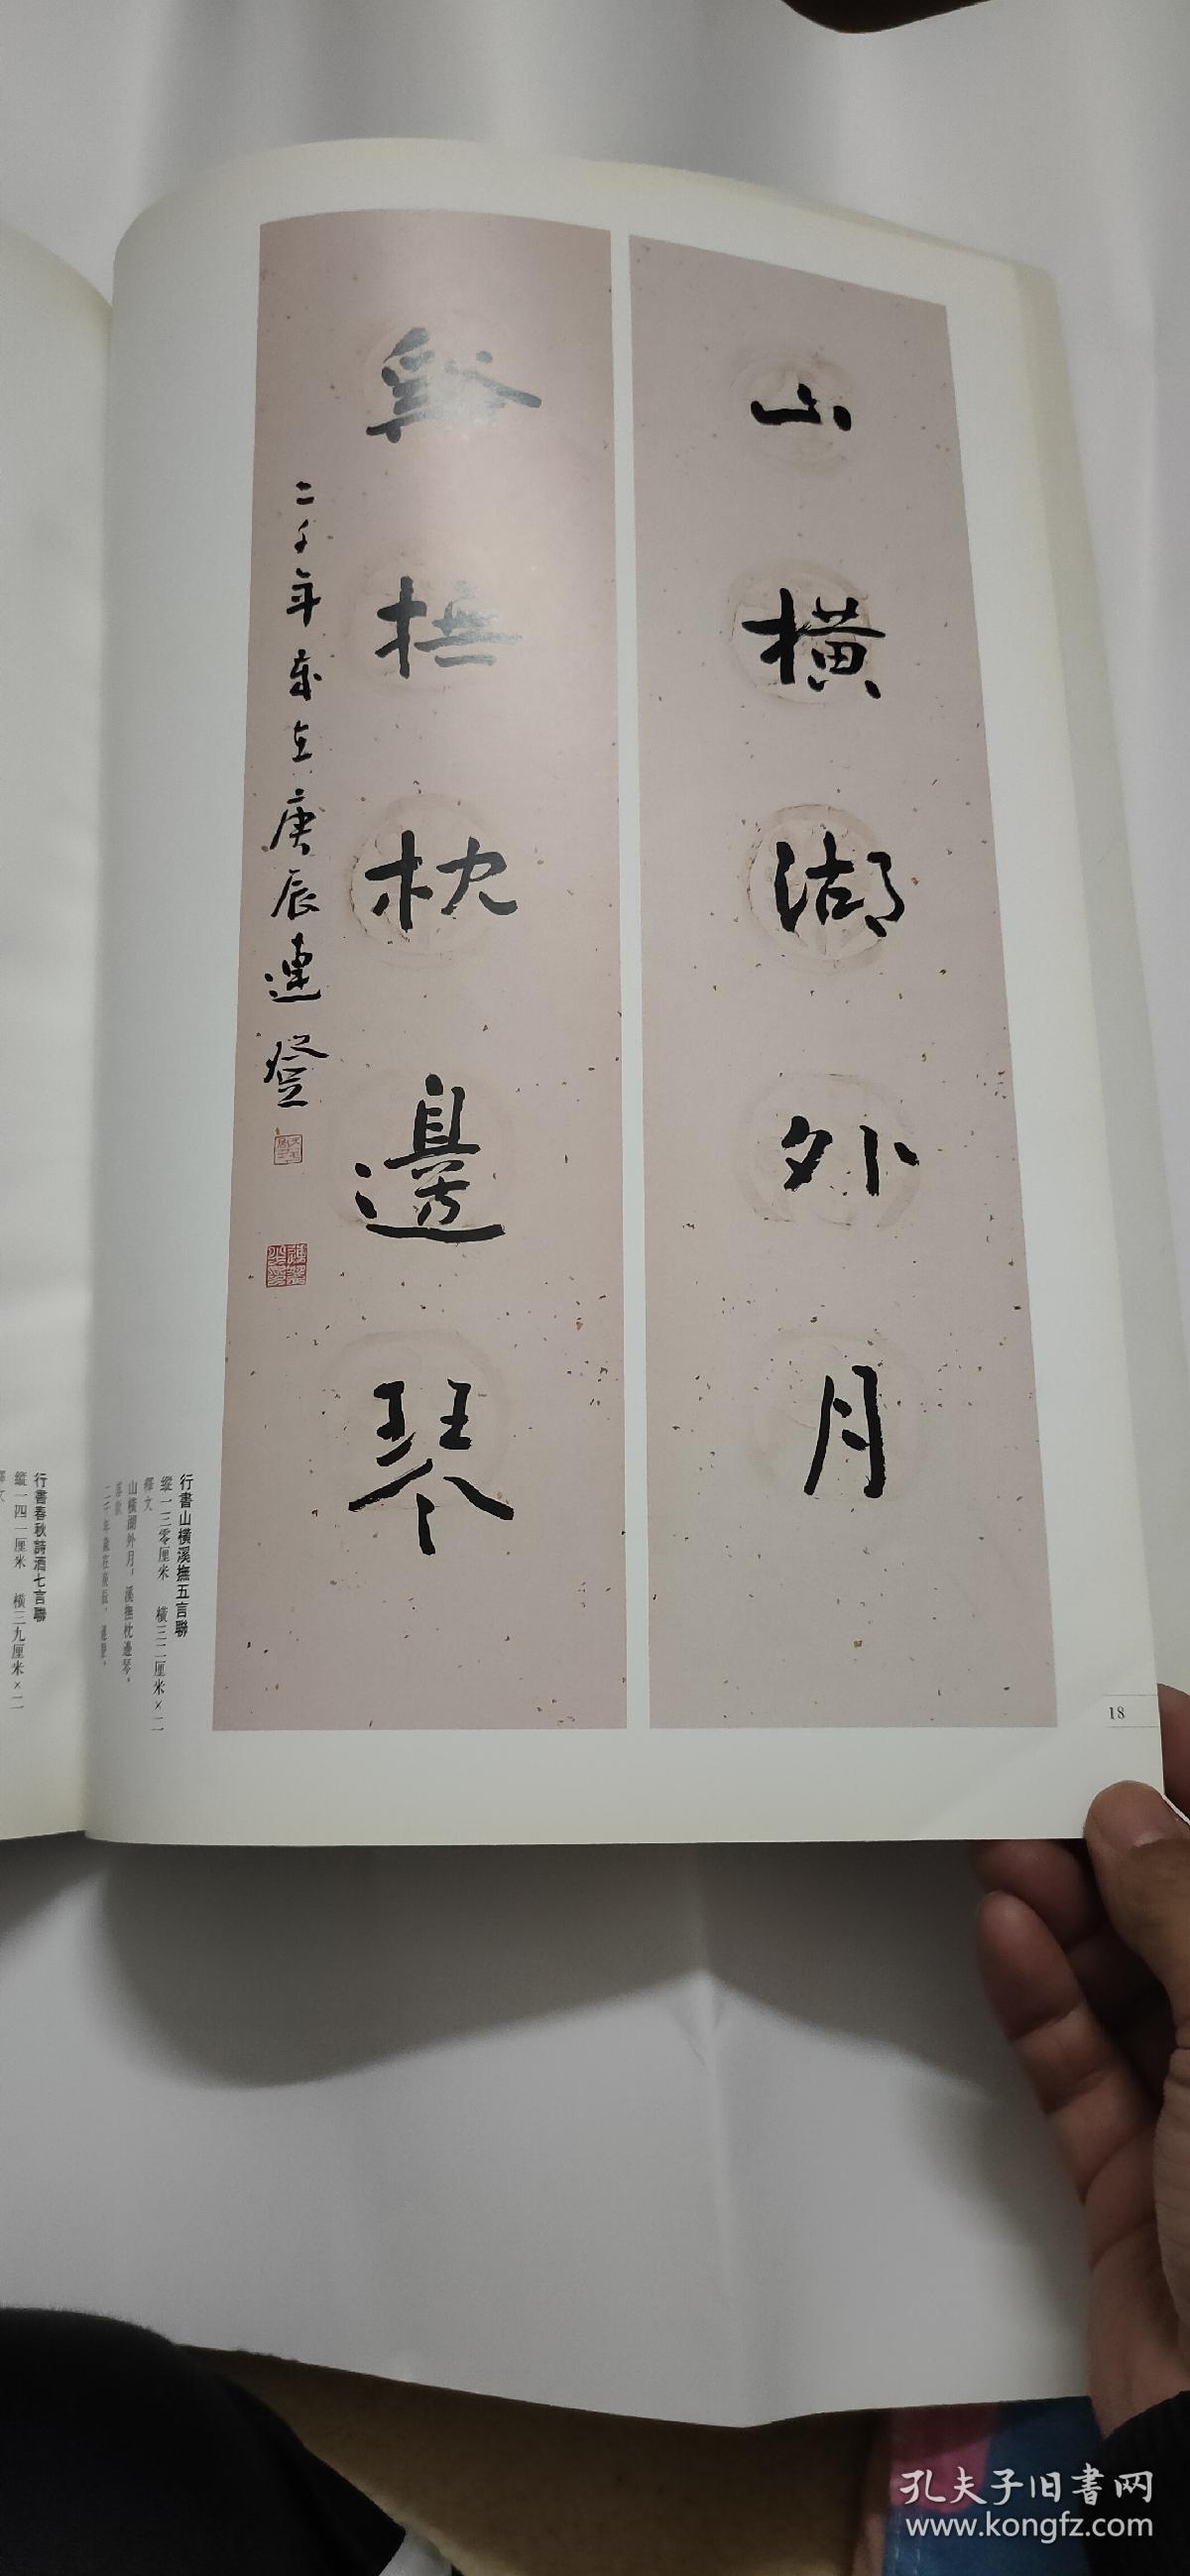 山橫湖外月
谿撫枕邊琴
二千年歲在庚辰連登
行書山橫溪撫五言聯
縱一三零厘米 橫三二厘米×二
釋文
山橫湖外月，溪撫枕邊琴。
落款
二千年歲在庚辰，連登。
行書春秋詩酒七言聯
縱一四一厘米 橫三九厘米×二
釋文
18
孔夫子旧書网
www.kongfz.com